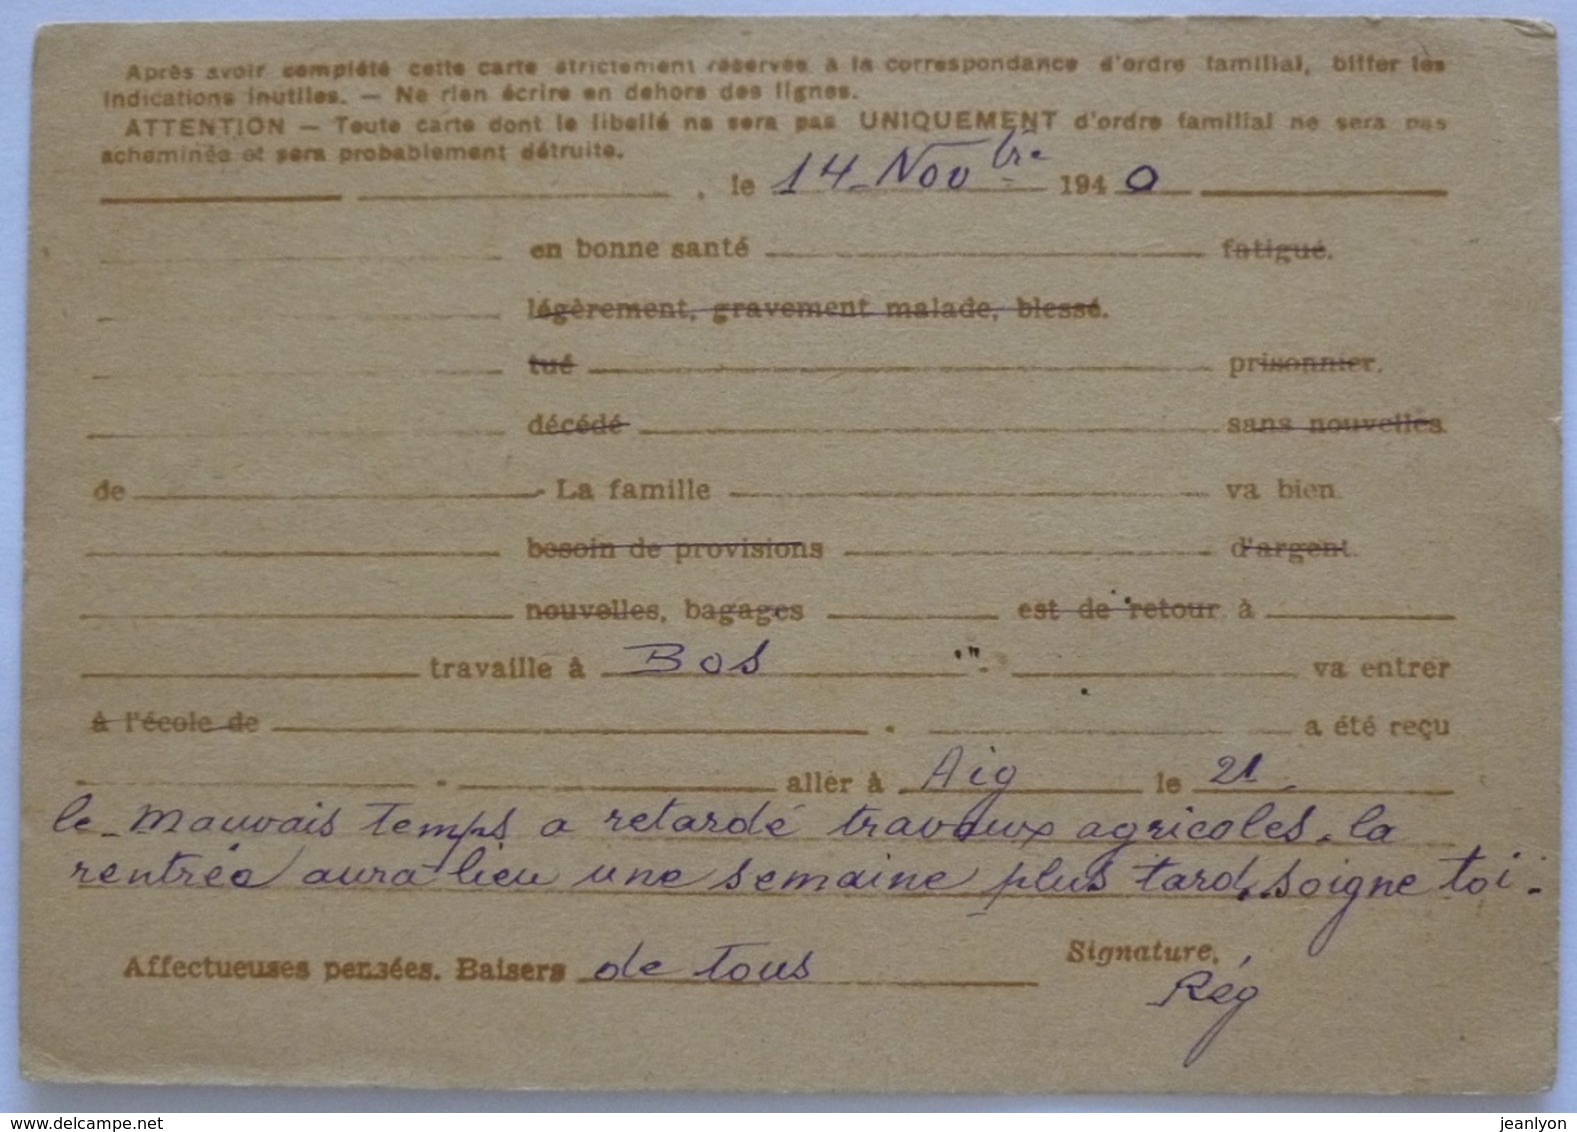 Après avoir complété cette carte strictement réservée à la correspondance d'ordre familial, biffer les
indications inutiles. — Ne rien écrire en dehors des lignes.
ATTENTION — Toute carte dont le libellé ne sera pas UNIQUEMENT d'ordre familial ne sera pas
acheminée et sera probablement détruite.
, le 14 Novbre 1940
en bonne santé fatigué.
légèrement, gravement malade, blessé.
tué prisonnier.
décédé sans nouvelles
de - La famille va bien.
besoin de provisions d'argent.
nouvelles, bagages est de retour à
travaille à Bos va entrer
à l'école de . a été reçu
- aller à Aig le 21.
le mauvais temps a retardé travaux agricoles. la
rentrée aura lieu une semaine plus tard, soigne toi.
Affectueuses pensées. Baisers de tous
Signature,
Rég
jeanlyon